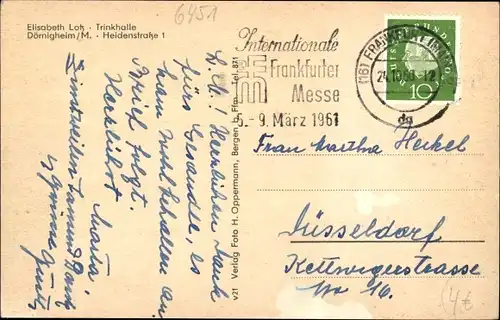 6451
Elisabeth Lotz · Trinkhalle
Dörnigheim/M. · Heidenstraße 1
Internationale
Frankfurter
Messe
5.-9. März 1961
(16) FRANKFURT
24.10.60-12
dq
10
L. M! Herzlichen Dank
fürs Gesandte, es
kam wohlbehalten an.
Brief folgt.
Herzlichst
Marta
v21 Verlag Foto H. Oppermann, Bergen b. Ffm. Tel. 871
Frau Martha Heckel
Düsseldorf
Kettwigerstrasse
No 16.
4€